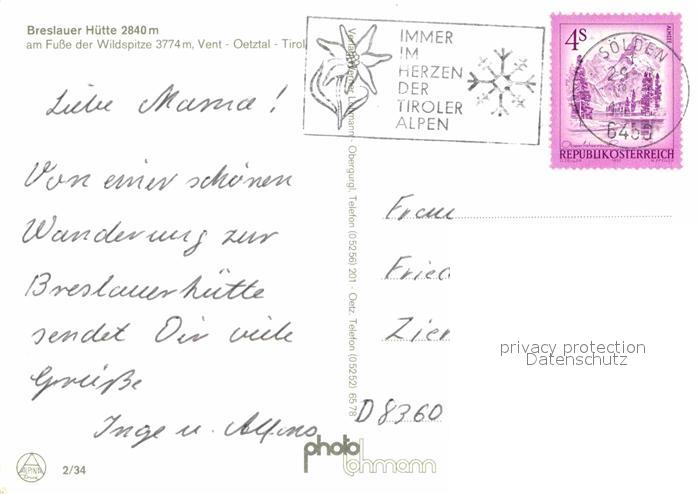 Breslauer Hütte 2840 m
am Fuße der Wildspitze 3774 m, Vent - Oetztal - Tirol
Liebe Mama!
Von einer schönen
Wanderung zur
Breslauerhütte
sendet Dir viele
Grüße
Inge u. Alfons
ALPINA
2/34
Verlag Werner Lohmann - Obergurgl, Telefon (05256) 201 - Oetz, Telefon (05252) 6578
IMMER
IM
HERZEN
DER
TIROLER
ALPEN
4S
SÖLDEN
6450
REPUBLIK ÖSTERREICH
Frau
Fried
Zier
D 8360
privacy protection
Datenschutz
photo
lohmann